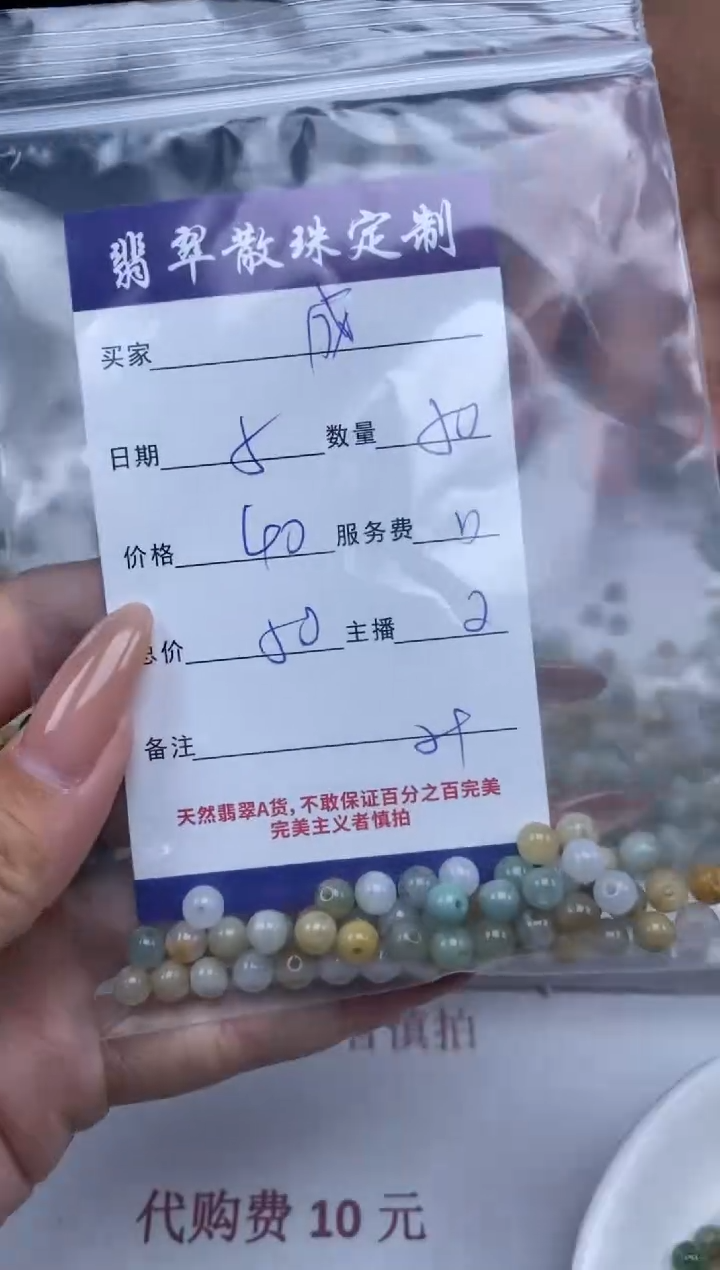 翡翠散珠定制
买家 成
日期 8 数量 80
价格 40 服务费 10
总价 50 主播 2
备注
天然翡翠A货,不敢保证百分之百完美
完美主义者慎拍
者慎拍
代购费 10 元